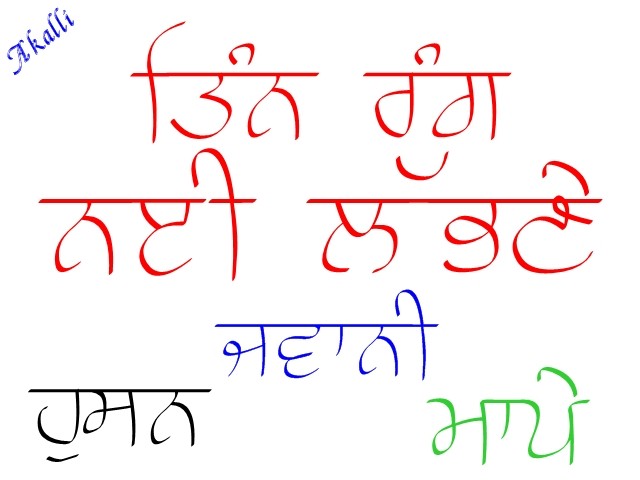 Akalli
ਤਿੰਨ ਰੰਗ
ਨਈ ਲੱਭਣੇ
ਜਵਾਨੀ
ਹੁਸਨ ਮਾਪੇ